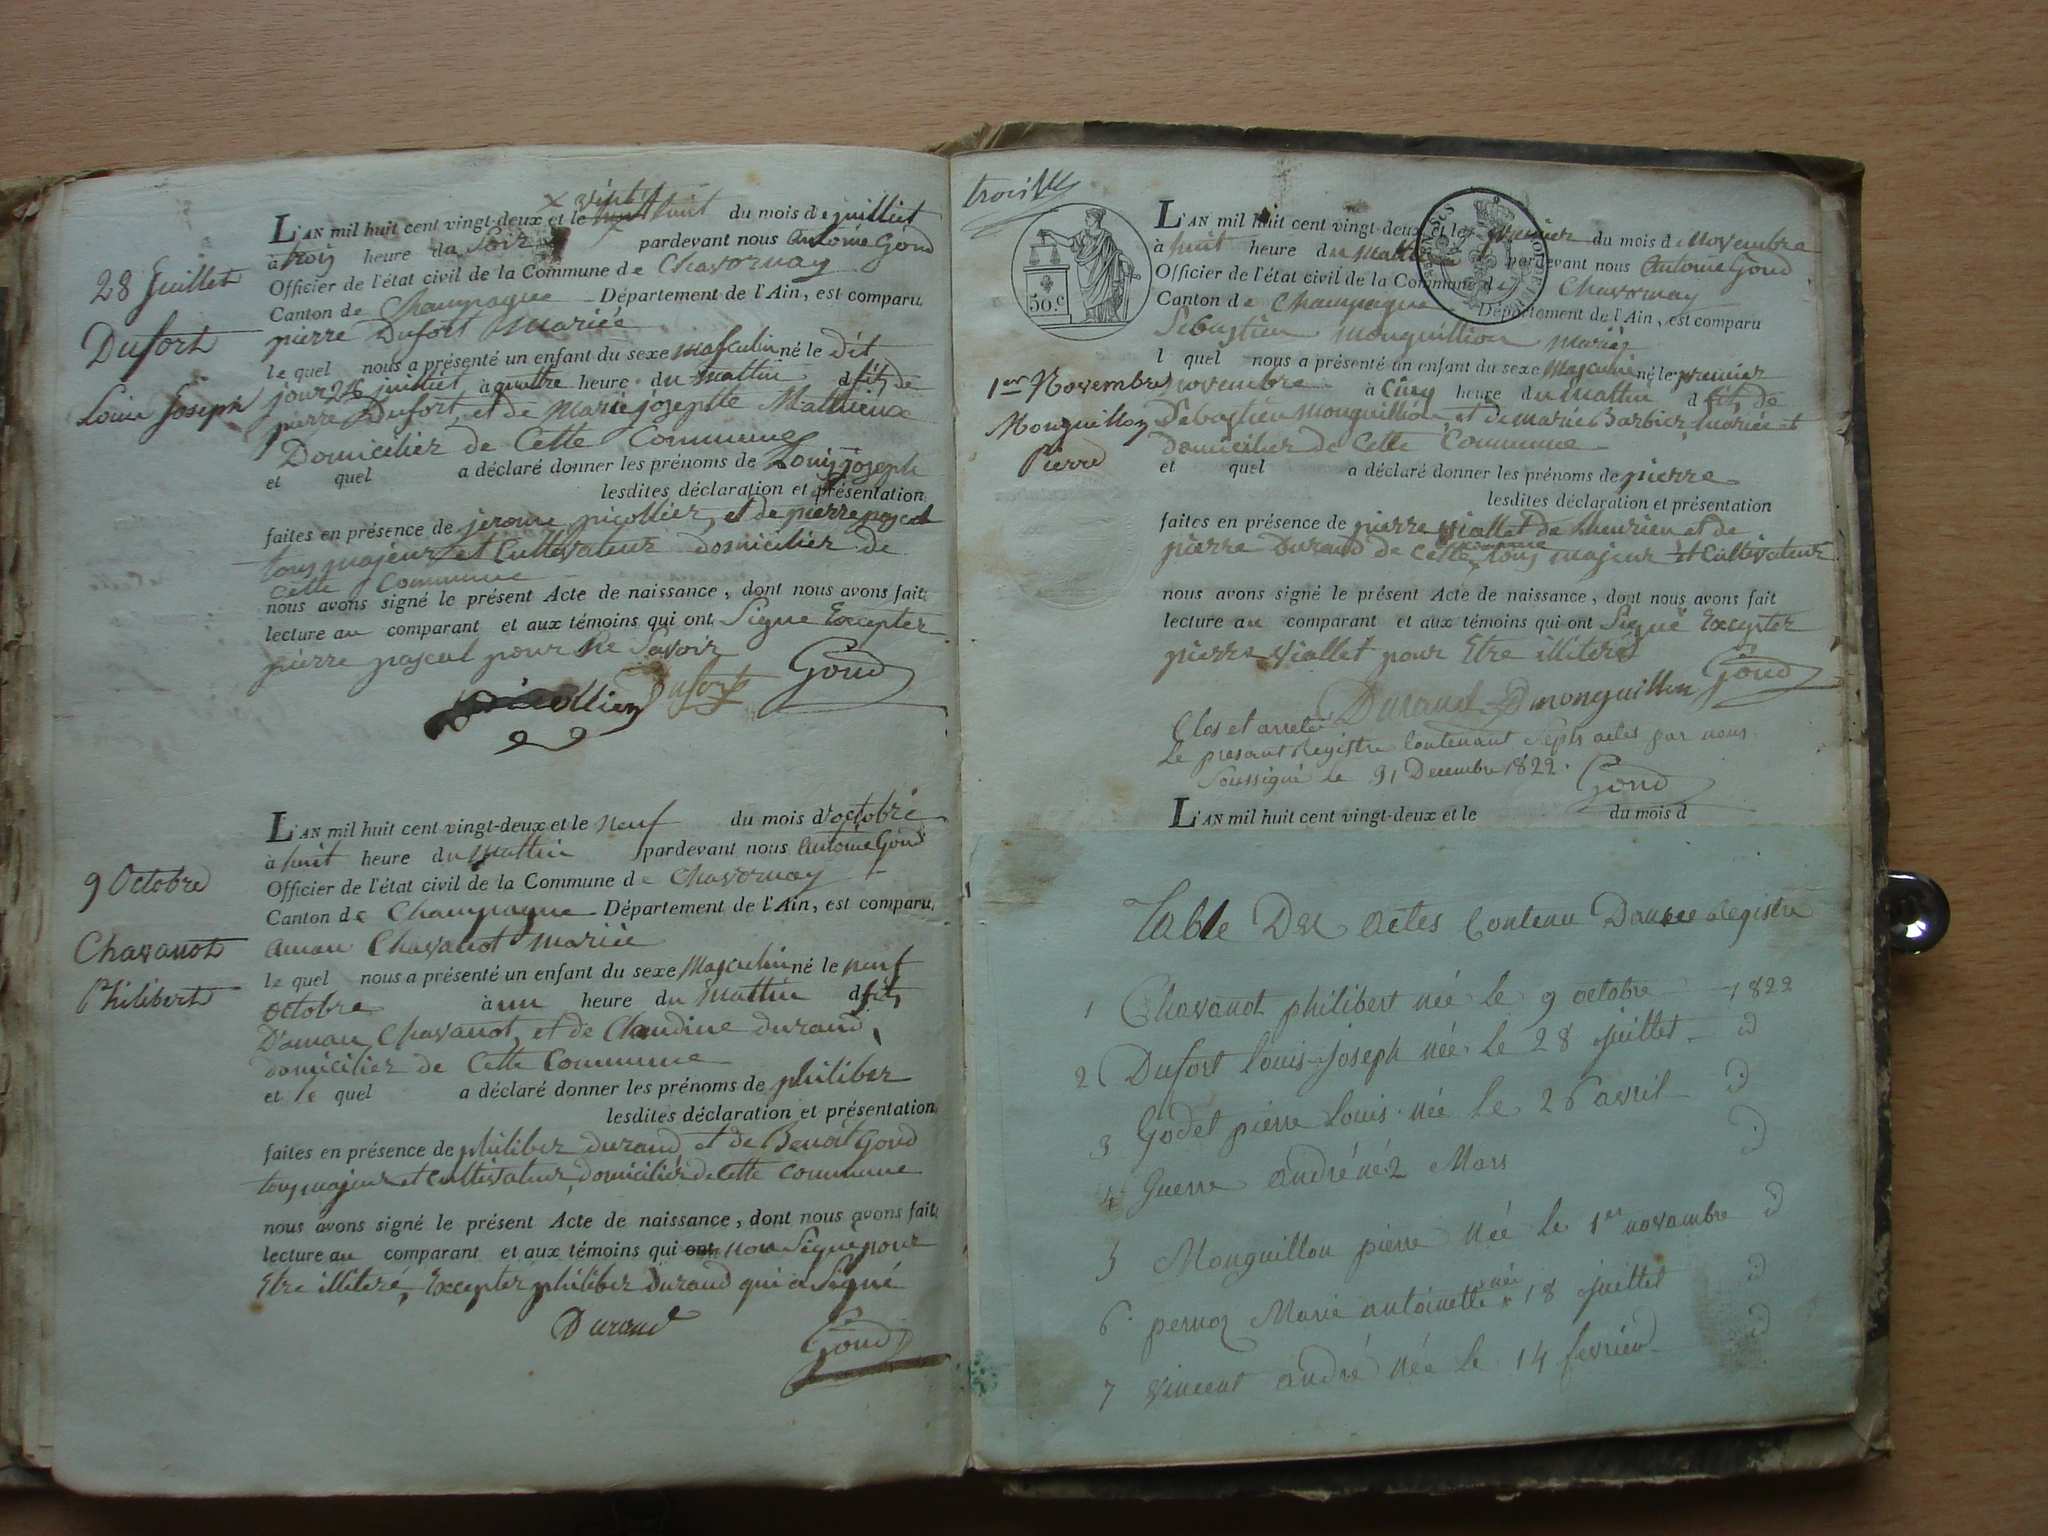 28 Juillet
Dufort
Louis Joseph
vint
L'AN mil huit cent vingt-deux et le huit du mois de juilliet
à trois heure du Soir pardevant nous Antoine Goud
Officier de l'état civil de la Commune de Chavornay
Canton de Champagne Département de l'Ain, est comparu
pierre Dufort mariéé
le quel nous a présenté un enfant du sexe masculin né le dit
jour 28 juilliet à quattre heure du mattin d fils de
pierre Dufort, et de marie josephte Mathieux
Domicilier de Cette Commune
et quel a déclaré donner les prénoms de Louis joseph
lesdites déclaration et présentation
faites en présence de jerome picollier, et de pierre pascal
tous majeur et Cultivateur domicilier de
Cette Commune
nous avons signé le présent Acte de naissance, dont nous avons fait
lecture au comparant et aux témoins qui ont Signe Excepter
pierre pascal pour Ne Savoir
Dufort Goud
9 Octobre
Chavanot
Philibert
L'AN mil huit cent vingt-deux et le neuf du mois d'octobre
à huit heure du mattin pardevant nous Antoine Goud
Officier de l'état civil de la Commune de Chavornay
Canton de Champagne Département de l'Ain, est comparu
aman Chavanot mariée
le quel nous a présenté un enfant du sexe Masculin né le neuf
octobre à un heure du mattin d fils
D'aman Chavanot, et de Claudine durand,
domicilier de Cette Commune
et le quel a déclaré donner les prénoms de philiber
lesdites déclaration et présentation
faites en présence de philiber durand et de Benoit Goud
tous majeur et cultivateur, domicilier de Cette commune
nous avons signé le présent Acte de naissance, dont nous avons fait
lecture au comparant et aux témoins qui ont non Signe pour
Etre illitere, Excepter philiber durand qui a Signé
Durand
Goud
trois
50.c
1er Novembre
Monguillon
Pierre
L'AN mil huit cent vingt-deux et le premier du mois de novembre
à huit heure du mattin pardevant nous Antoine Goud
Officier de l'état civil de la Commune de Chavornay
Canton de Champagne Département de l'Ain, est comparu
Sebastien monguillion mariéz
l quel nous a présenté un enfant du sexe Masculin né le premier
novembre à Cinq heure du mattin d fils de
Sebastien monguillion, et de marie Barbier, mariée et
domicilier de Cette Commune
et quel a déclaré donner les prénoms de pierre
lesdites déclaration et présentation
faites en présence de pierre viallet de et de
pierre Durand de cette commune tous majeur et Cultivateur
nous avons signé le présent Acte de naissance, dont nous avons fait
lecture au comparant et aux témoins qui ont Signé Excepter
pierre Viallet pour Etre illiteré
Durand monguillon Goud
Clos et arreté
Le presant Registre Contenant Septs actes par nous
Soussigné le 31 Decembre 1822.
Goud
L'AN mil huit cent vingt-deux et le du mois d
Table Des actes Contenu Dans ce Registre
1 Chavanot philibert née le 9 octobre 1822
2 Dufort Louis-Joseph née le 28 juillet id
3 Godet pierre Louis née le 26 avril id
4 Guerre andré né 2 Mars id
5 Monguillon pierre née le 1er novambre id
6 pernoz Marie antoinette née 18 juillet id
7 vincent andré née le 14 fevrier id